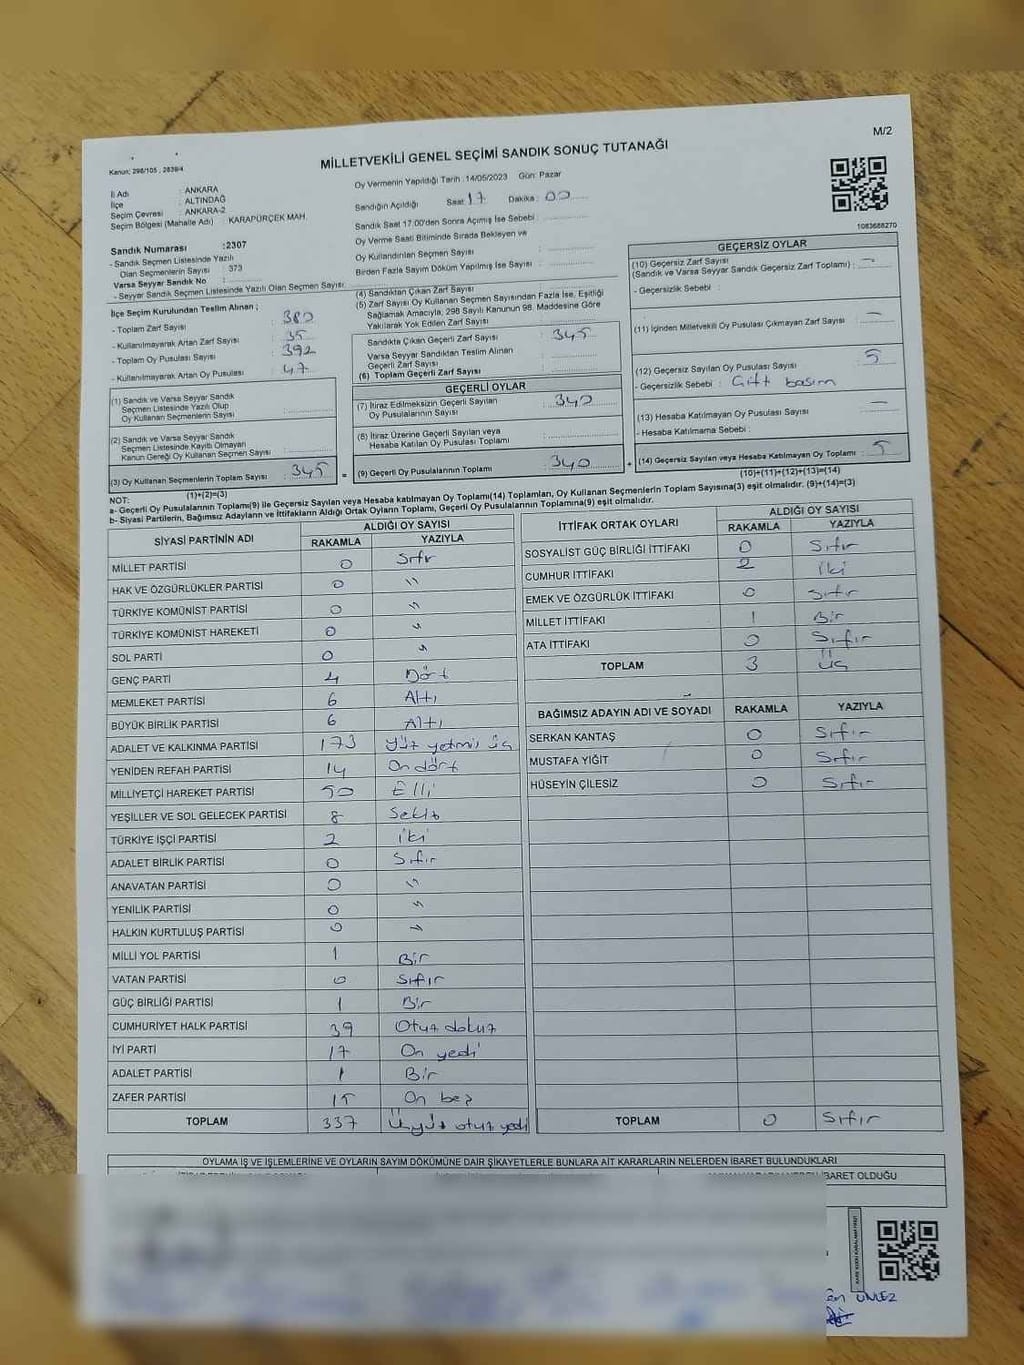 M/2
Kanun: 298/105 , 2839/4
MİLLETVEKİLİ GENEL SEÇİMİ SANDIK SONUÇ TUTANAĞI
İl Adı : ANKARA
İlçe : ALTINDAĞ
Seçim Çevresi : ANKARA-2
Seçim Bölgesi (Mahalle Adı) : KARAPÜRÇEK MAH.
Sandık Numarası :2307
- Sandık Seçmen Listesinde Yazılı
Olan Seçmenlerin Sayısı : 373
Varsa Seyyar Sandık No :
- Seyyar Sandık Seçmen Listesinde Yazılı Olan Seçmen Sayısı:
İlçe Seçim Kurulundan Teslim Alınan ;
- Toplam Zarf Sayısı : 380
- Kullanılmayarak Artan Zarf Sayısı : 35
- Toplam Oy Pusulası Sayısı : 392
- Kullanılmayarak Artan Oy Pusulası : 47
(1) Sandık ve Varsa Seyyar Sandık
Seçmen Listesinde Yazılı Olup
Oy Kullanan Seçmenlerin Sayısı :
(2) Sandık ve Varsa Seyyar Sandık
Seçmen Listesinde Kayıtlı Olmayan
Kanun Gereği Oy Kullanan Seçmen Sayısı :
(3) Oy Kullanan Seçmenlerin Toplam Sayısı : 345
(1)+(2)=(3)
Oy Vermenin Yapıldığı Tarih :14/05/2023 Gün: Pazar
Sandığın Açıldığı Saat: 17 Dakika : 00
Sandık Saat 17.00'den Sonra Açılmış İse Sebebi :
Oy Verme Saati Bitiminde Sırada Bekleyen ve
Oy Kullandırılan Seçmen Sayısı :
Birden Fazla Sayım Döküm Yapılmış İse Sayısı :
(4) Sandıktan Çıkan Zarf Sayısı :
(5) Zarf Sayısı Oy Kullanan Seçmen Sayısından Fazla İse, Eşitliği
Sağlamak Amacıyla, 298 Sayılı Kanunun 98. Maddesine Göre
Yakılarak Yok Edilen Zarf Sayısı :
Sandıkta Çıkan Geçerli Zarf Sayısı : 345
Varsa Seyyar Sandıktan Teslim Alınan
Geçerli Zarf Sayısı :
(6) Toplam Geçerli Zarf Sayısı :
GEÇERLİ OYLAR
(7) İtiraz Edilmeksizin Geçerli Sayılan
Oy Pusulalarının Sayısı : 340
(8) İtiraz Üzerine Geçerli Sayılan veya
Hesaba Katılan Oy Pusulası Toplamı :
= (9) Geçerli Oy Pusulalarının Toplamı : 340
1083688270
GEÇERSİZ OYLAR
(10) Geçersiz Zarf Sayısı
(Sandık ve Varsa Seyyar Sandık Geçersiz Zarf Toplamı) : —
- Geçersizlik Sebebi :
(11) İçinden Milletvekili Oy Pusulası Çıkmayan Zarf Sayısı : —
(12) Geçersiz Sayılan Oy Pusulası Sayısı : 5
- Geçersizlik Sebebi : Çift basım
(13) Hesaba Katılmayan Oy Pusulası Sayısı : —
- Hesaba Katılmama Sebebi :
+ (14) Geçersiz Sayılan veya Hesaba Katılmayan Oy Toplamı : 5
(10)+(11)+(12)+(13)=(14)
NOT:
a- Geçerli Oy Pusulalarının Toplamı(9) ile Geçersiz Sayılan veya Hesaba katılmayan Oy Toplamı(14) Toplamları, Oy Kullanan Seçmenlerin Toplam Sayısına(3) eşit olmalıdır. (9)+(14)=(3)
b- Siyasi Partilerin, Bağımsız Adayların ve İttifakların Aldığı Ortak Oyların Toplamı, Geçerli Oy Pusulalarının Toplamına(9) eşit olmalıdır.
SİYASİ PARTİNİN ADI ALDIĞI OY SAYISI
RAKAMLA YAZIYLA
MİLLET PARTİSİ 0 Sıfır
HAK VE ÖZGÜRLÜKLER PARTİSİ 0 "
TÜRKİYE KOMÜNİST PARTİSİ 0 "
TÜRKİYE KOMÜNİST HAREKETİ 0 "
SOL PARTİ 0 "
GENÇ PARTİ 4 Dört
MEMLEKET PARTİSİ 6 Altı
BÜYÜK BİRLİK PARTİSİ 6 Altı
ADALET VE KALKINMA PARTİSİ 173 Yüz yetmiş üç
YENİDEN REFAH PARTİSİ 14 On dört
MİLLİYETÇİ HAREKET PARTİSİ 50 Elli
YEŞİLLER VE SOL GELECEK PARTİSİ 8 Sekiz
TÜRKİYE İŞÇİ PARTİSİ 2 iki
ADALET BİRLİK PARTİSİ 0 Sıfır
ANAVATAN PARTİSİ 0 "
YENİLİK PARTİSİ 0 "
HALKIN KURTULUŞ PARTİSİ 0 "
MİLLİ YOL PARTİSİ 1 Bir
VATAN PARTİSİ 0 Sıfır
GÜÇ BİRLİĞİ PARTİSİ 1 Bir
CUMHURİYET HALK PARTİSİ 39 Otuz dokuz
İYİ PARTİ 17 On yedi
ADALET PARTİSİ 1 Bir
ZAFER PARTİSİ 15 On beş
TOPLAM 337 Üçyüz otuz yedi
İTTİFAK ORTAK OYLARI ALDIĞI OY SAYISI
RAKAMLA YAZIYLA
SOSYALİST GÜÇ BİRLİĞİ İTTİFAKI 0 Sıfır
CUMHUR İTTİFAKI 2 iki
EMEK VE ÖZGÜRLÜK İTTİFAKI 0 Sıfır
MİLLET İTTİFAKI 1 Bir
ATA İTTİFAKI 0 Sıfır
TOPLAM 3 Üç
BAĞIMSIZ ADAYIN ADI VE SOYADI RAKAMLA YAZIYLA
SERKAN KANTAŞ 0 Sıfır
MUSTAFA YİĞİT 0 Sıfır
HÜSEYİN ÇİLESİZ 0 Sıfır
TOPLAM 0 Sıfır
OYLAMA İŞ VE İŞLEMLERİNE VE OYLARIN SAYIM DÖKÜMÜNE DAİR ŞİKAYETLERLE BUNLARA AİT KARARLARIN NELERDEN İBARET BULUNDUKLARI
İBARET OLDUĞU